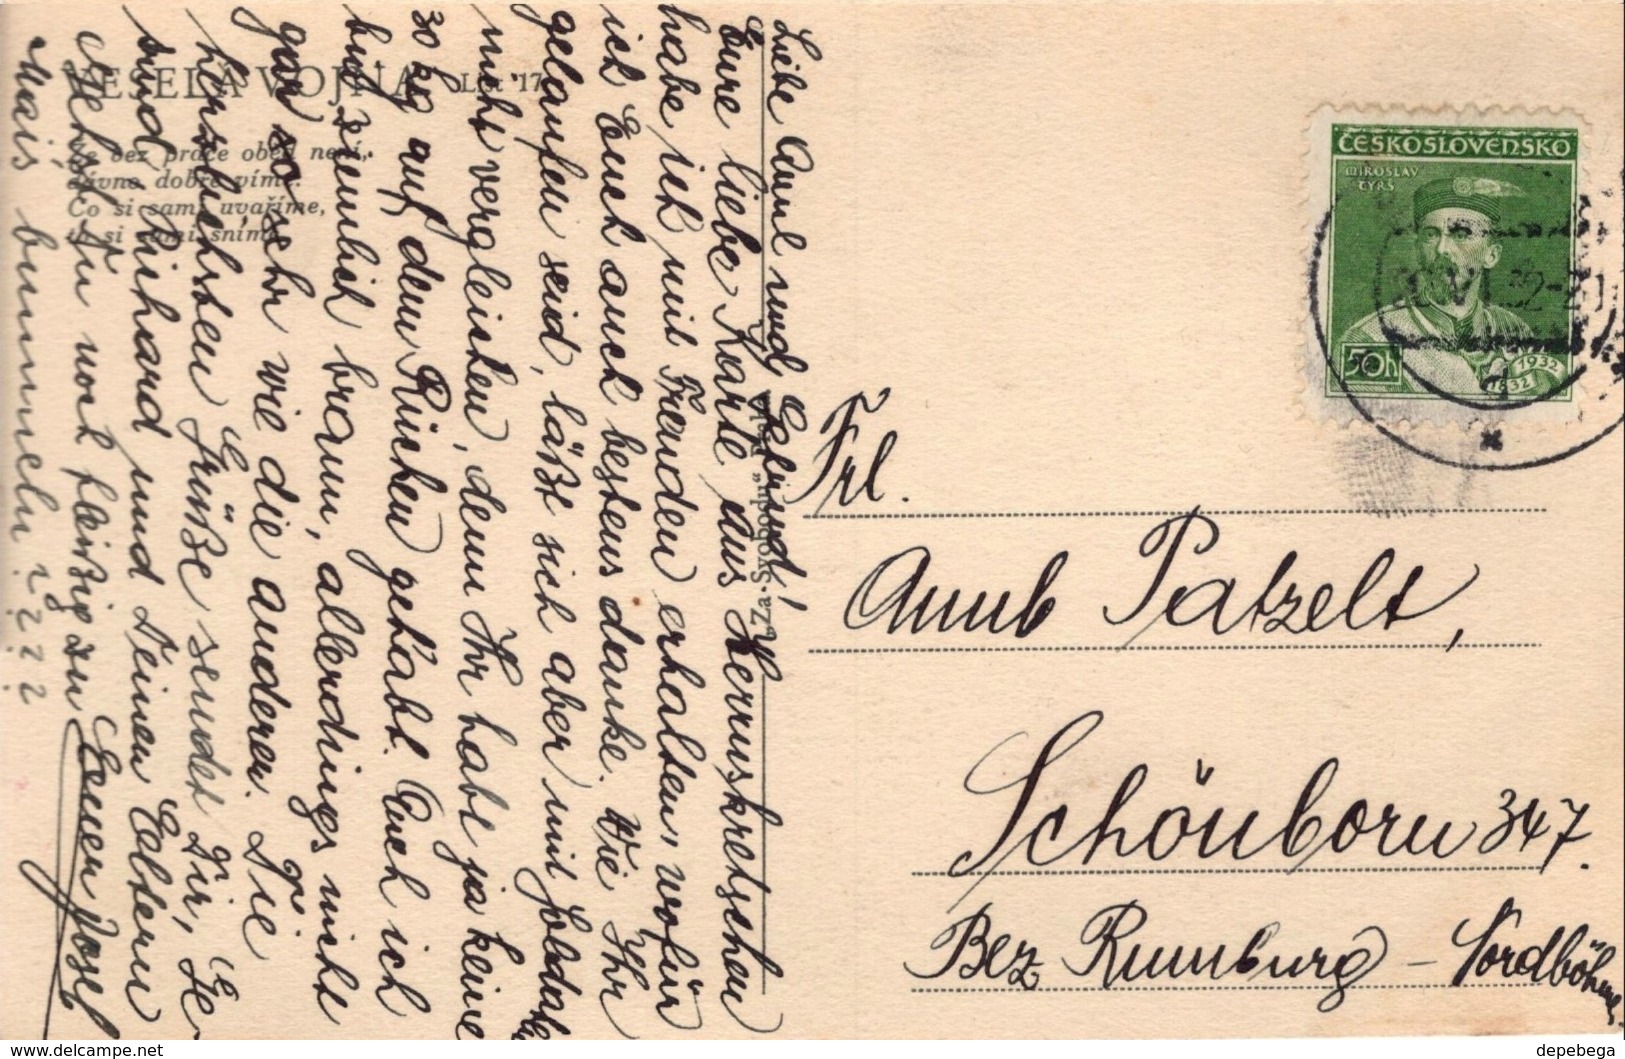 VESELÁ VOJNA
bez práce oběd není,
dávno dobře víme.
Co si sami uvaříme,
to si sami sníme.
Liebe Annl und Gertrud!
Eure liebe Karte aus Herrnskretschen
habe ich mit Freuden erhalten, wofür
ich Euch auch bestens danke. Wie Ihr
gelaufen seid, läßt sich aber mit
nicht vergleichen, denn Ihr habt ja keine
30 kg auf dem Rücken gehabt. Auch ich
bin ziemlich braun, allerdings nicht
gar so sehr wie die anderen. Die
herzlichsten Grüße sendet Dir,
und Richard und Deinen Eltern
Euer Josef
Gehst Du noch fleißig zu
bummeln ? ? ? ?
"Svoboda"
Frl.
Annb Patzelt,
Schönborn 347.
Bez Rumburg – Nordböhmen.
ČESKOSLOVENSKO
MIROSLAV
TYRŠ
50h
1832
1932
depebega
www.delcampe.net